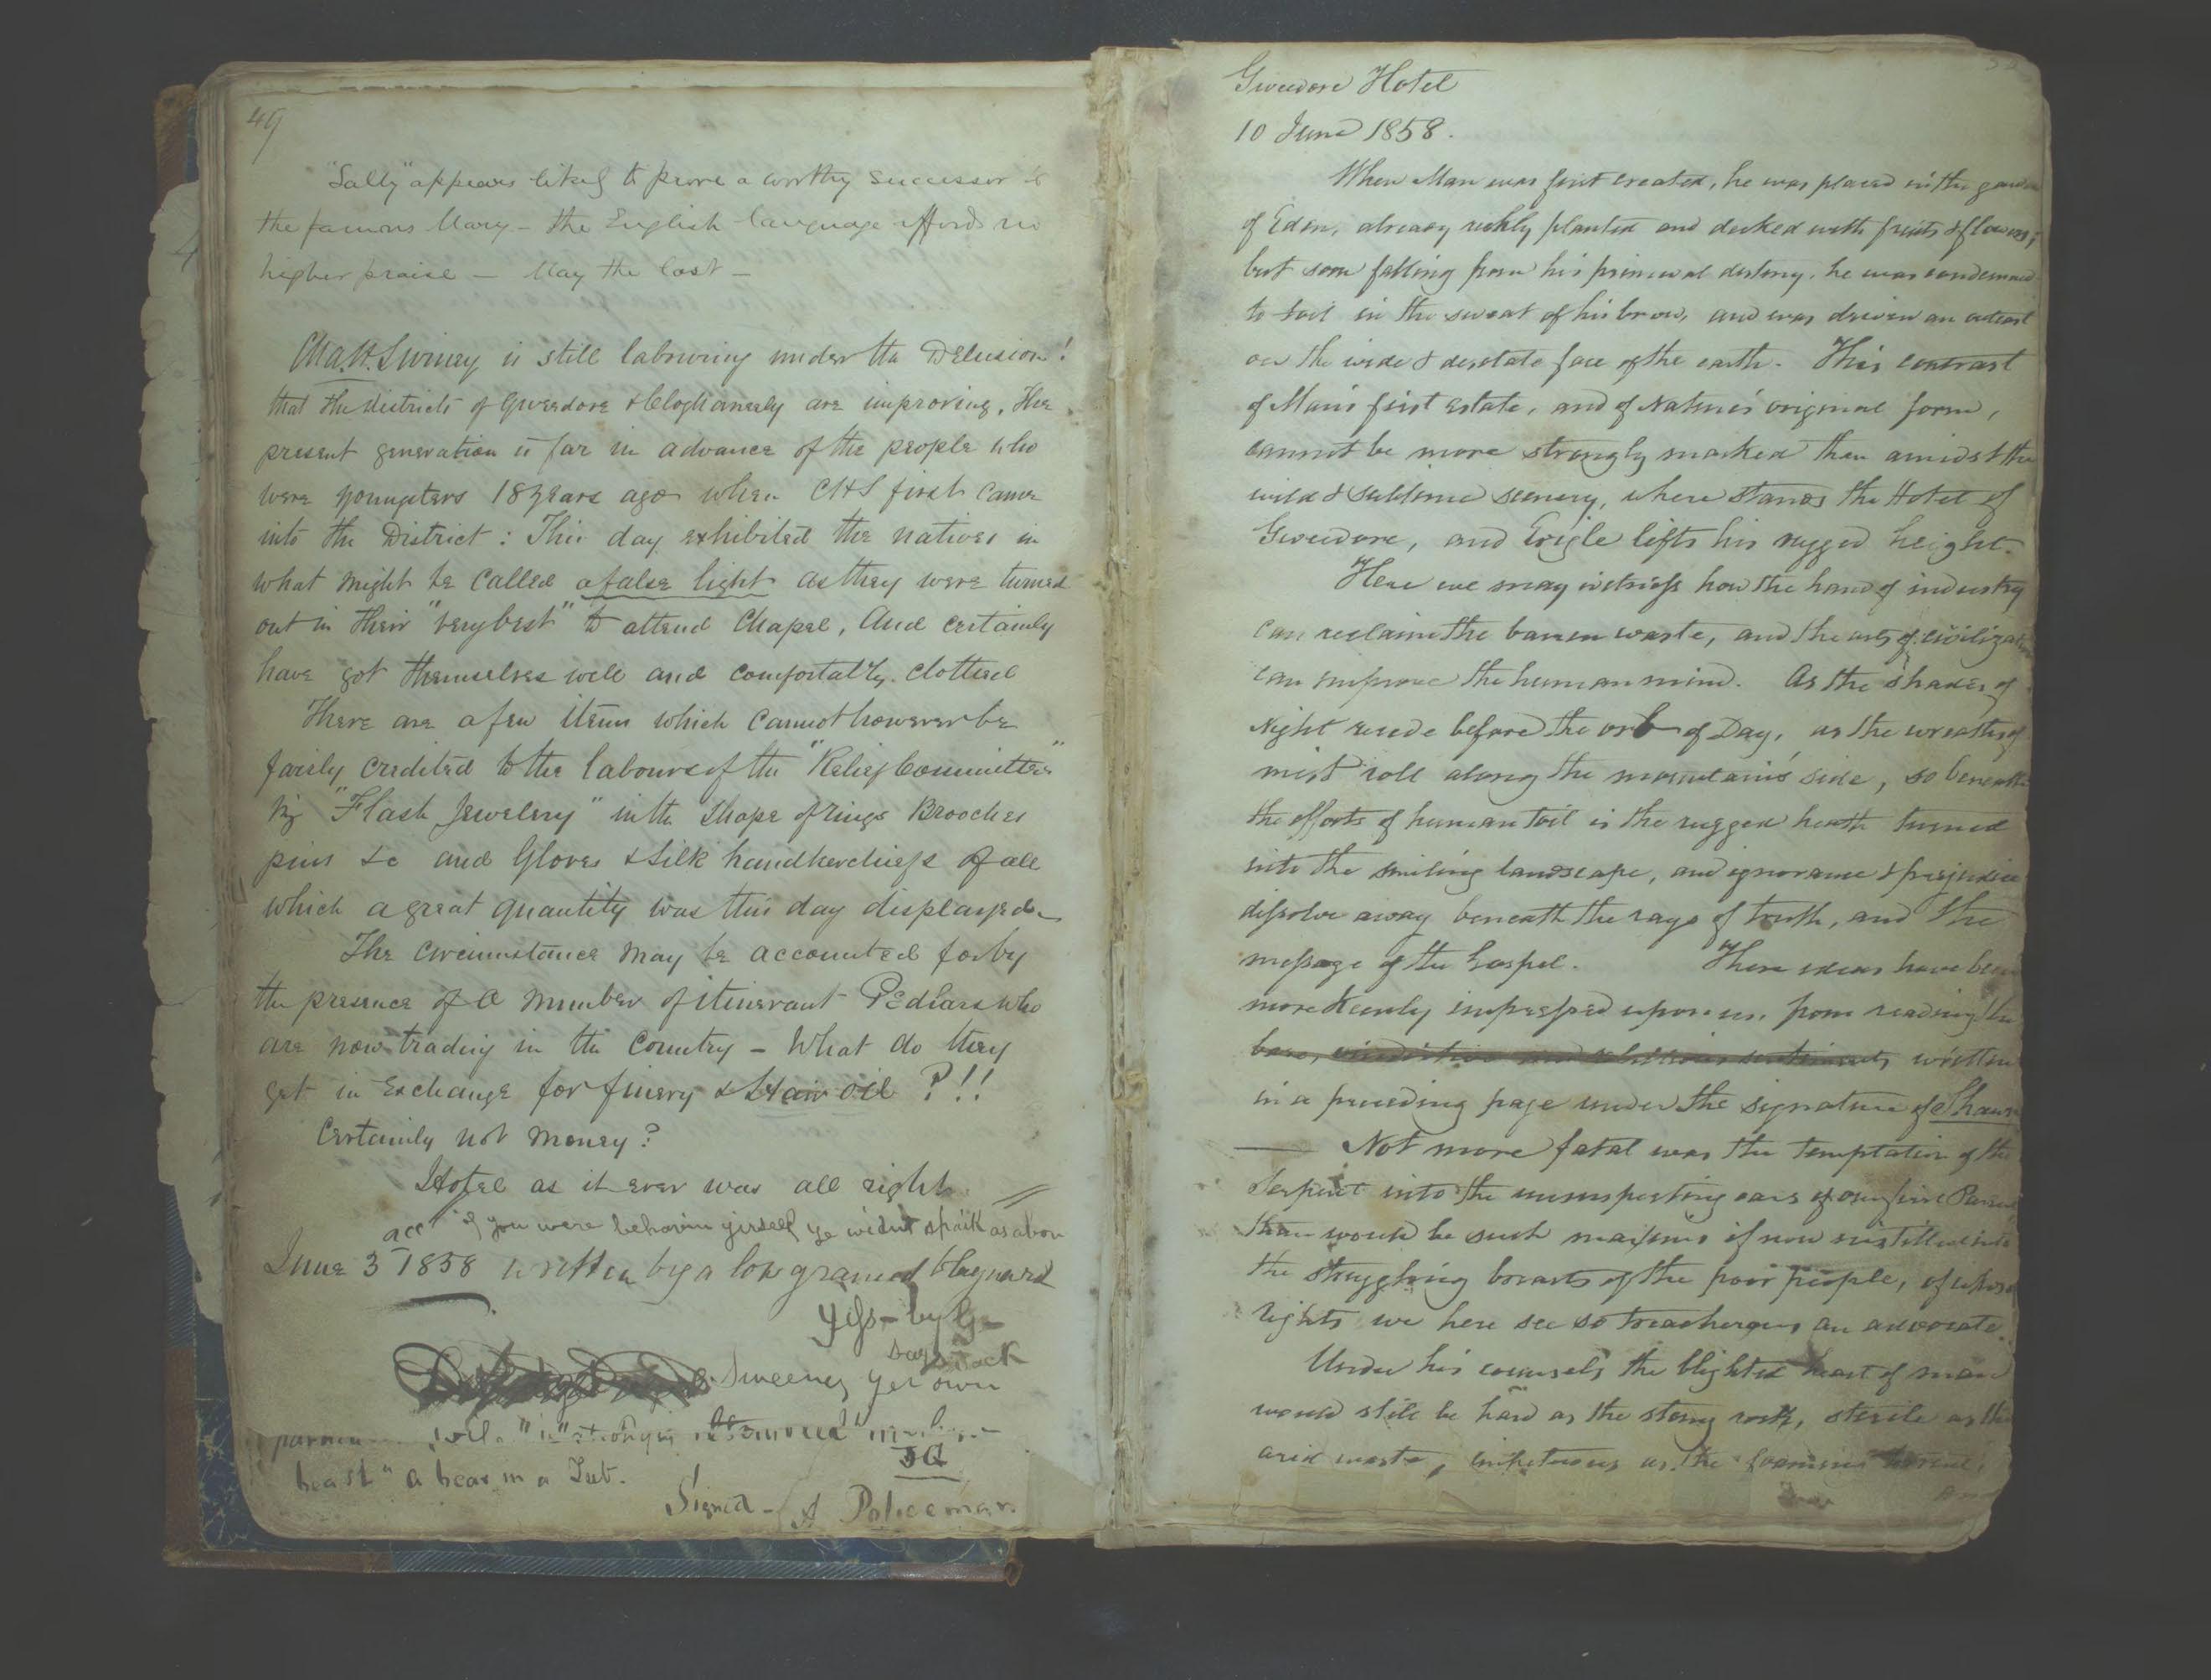 49
"Sally" appears likely to prove a worthy successor to
the famous Mary – the English language affords no
higher praise – May the last –
Chas. H. Swiney is still labouring under the Delusion!
that the districts of Gweedore & Cloghaneely are improving. The
present generation is far in advance of the people who
were youngsters 18 years ago when CHS first came
into the District: This day exhibited the natives in
what might be called a false light as they were turned
out in their "very best" to attend Chapel, And certainly
have got themselves well and comfortably clothed
There are a few items which cannot however be
fairly credited to the labours of the "Relief Committee"
viz "Flash Jewelery" in the shape of rings Brooches
pins &c and Gloves & Silk handkerchiefs of all
which a great quantity was this day displayed
The circumstance may be accounted for by
the presence of a number of itinerant Pedlars who
are now trading in the Country – What do they
get in Exchange for finery & Hair oil ?!!
Certainly not money?
Hotel as it ever was all right
if you were behavin yerself ye widnt spaik as abov
June 3 1858 written by a low grained blagnard
Yess – by G–
says Jack
Sweeney yer own
beast" a bear in a Tub.
JQ
Signed – A Policeman
Gweedore Hotel
10 June 1858.
When Man was first created, he was placed in the garden
of Eden, already richly planted and decked with fruits & flowers;
but soon falling from his primeval destiny, he was condemned
to toil in the sweat of his brow, and was driven an outcast
on the wide & desolate face of the earth. This contrast
of Man's first estate, and of Nature's original form,
cannot be more strongly marked than amidst the
wild & sublime scenery, where stands the Hotel of
Gweedore, and Erigle lifts his rugged height.
Here we may witness how the hand of industry
can reclaim the barren waste, and the arts of civilization
can improve the human mind. As the shades of
Night recede before the orb of Day, as the wreaths of
mist roll along the mountain's side, so beneath
the efforts of human toil is the rugged heath turned
into the smiling landscape, and ignorance & prejudice
dissolve away beneath the rays of truth, and the
message of the Gospel. These ideas have been
more keenly impressed upon us, from reading the
base, vindictive and sentiments written
in a preceding page under the signature of Thaun
Not more fatal was the temptation of the
Serpent into the unsuspecting ears of our first Parent
than would be such maxims if now instilled into
the struggling breasts of the poor people, of whose
rights we here see so treacherous an advocate.
Under his counsels the blighted heart of man
would still be hard as the stony rock, sterile as the
arid waste, impetuous as the foaming torrent,